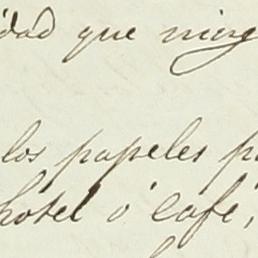 idad que ning
los papeles p
hotel ó café,